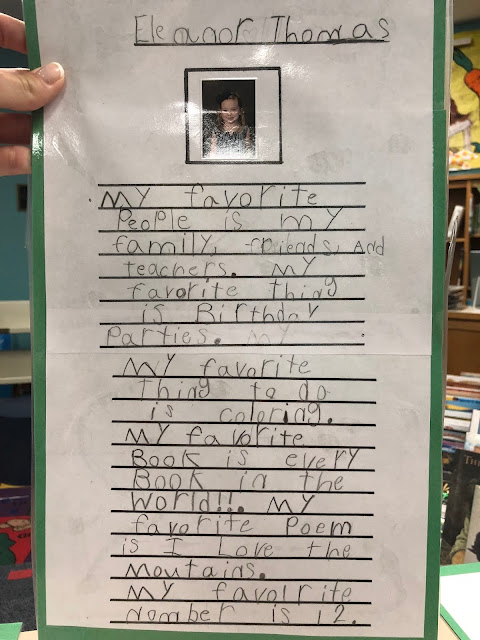 Eleanor Thomas
My favorite
People is my
family, friends, And
teachers. My
favorite thing
is Birthday
Parties. My
My favorite
thing to do
is coloring.
My favorite
Book is every
Book in the
World!!! My
favorite Poem
is I Love the
Moutains.
My favolrite
nomber is 12.